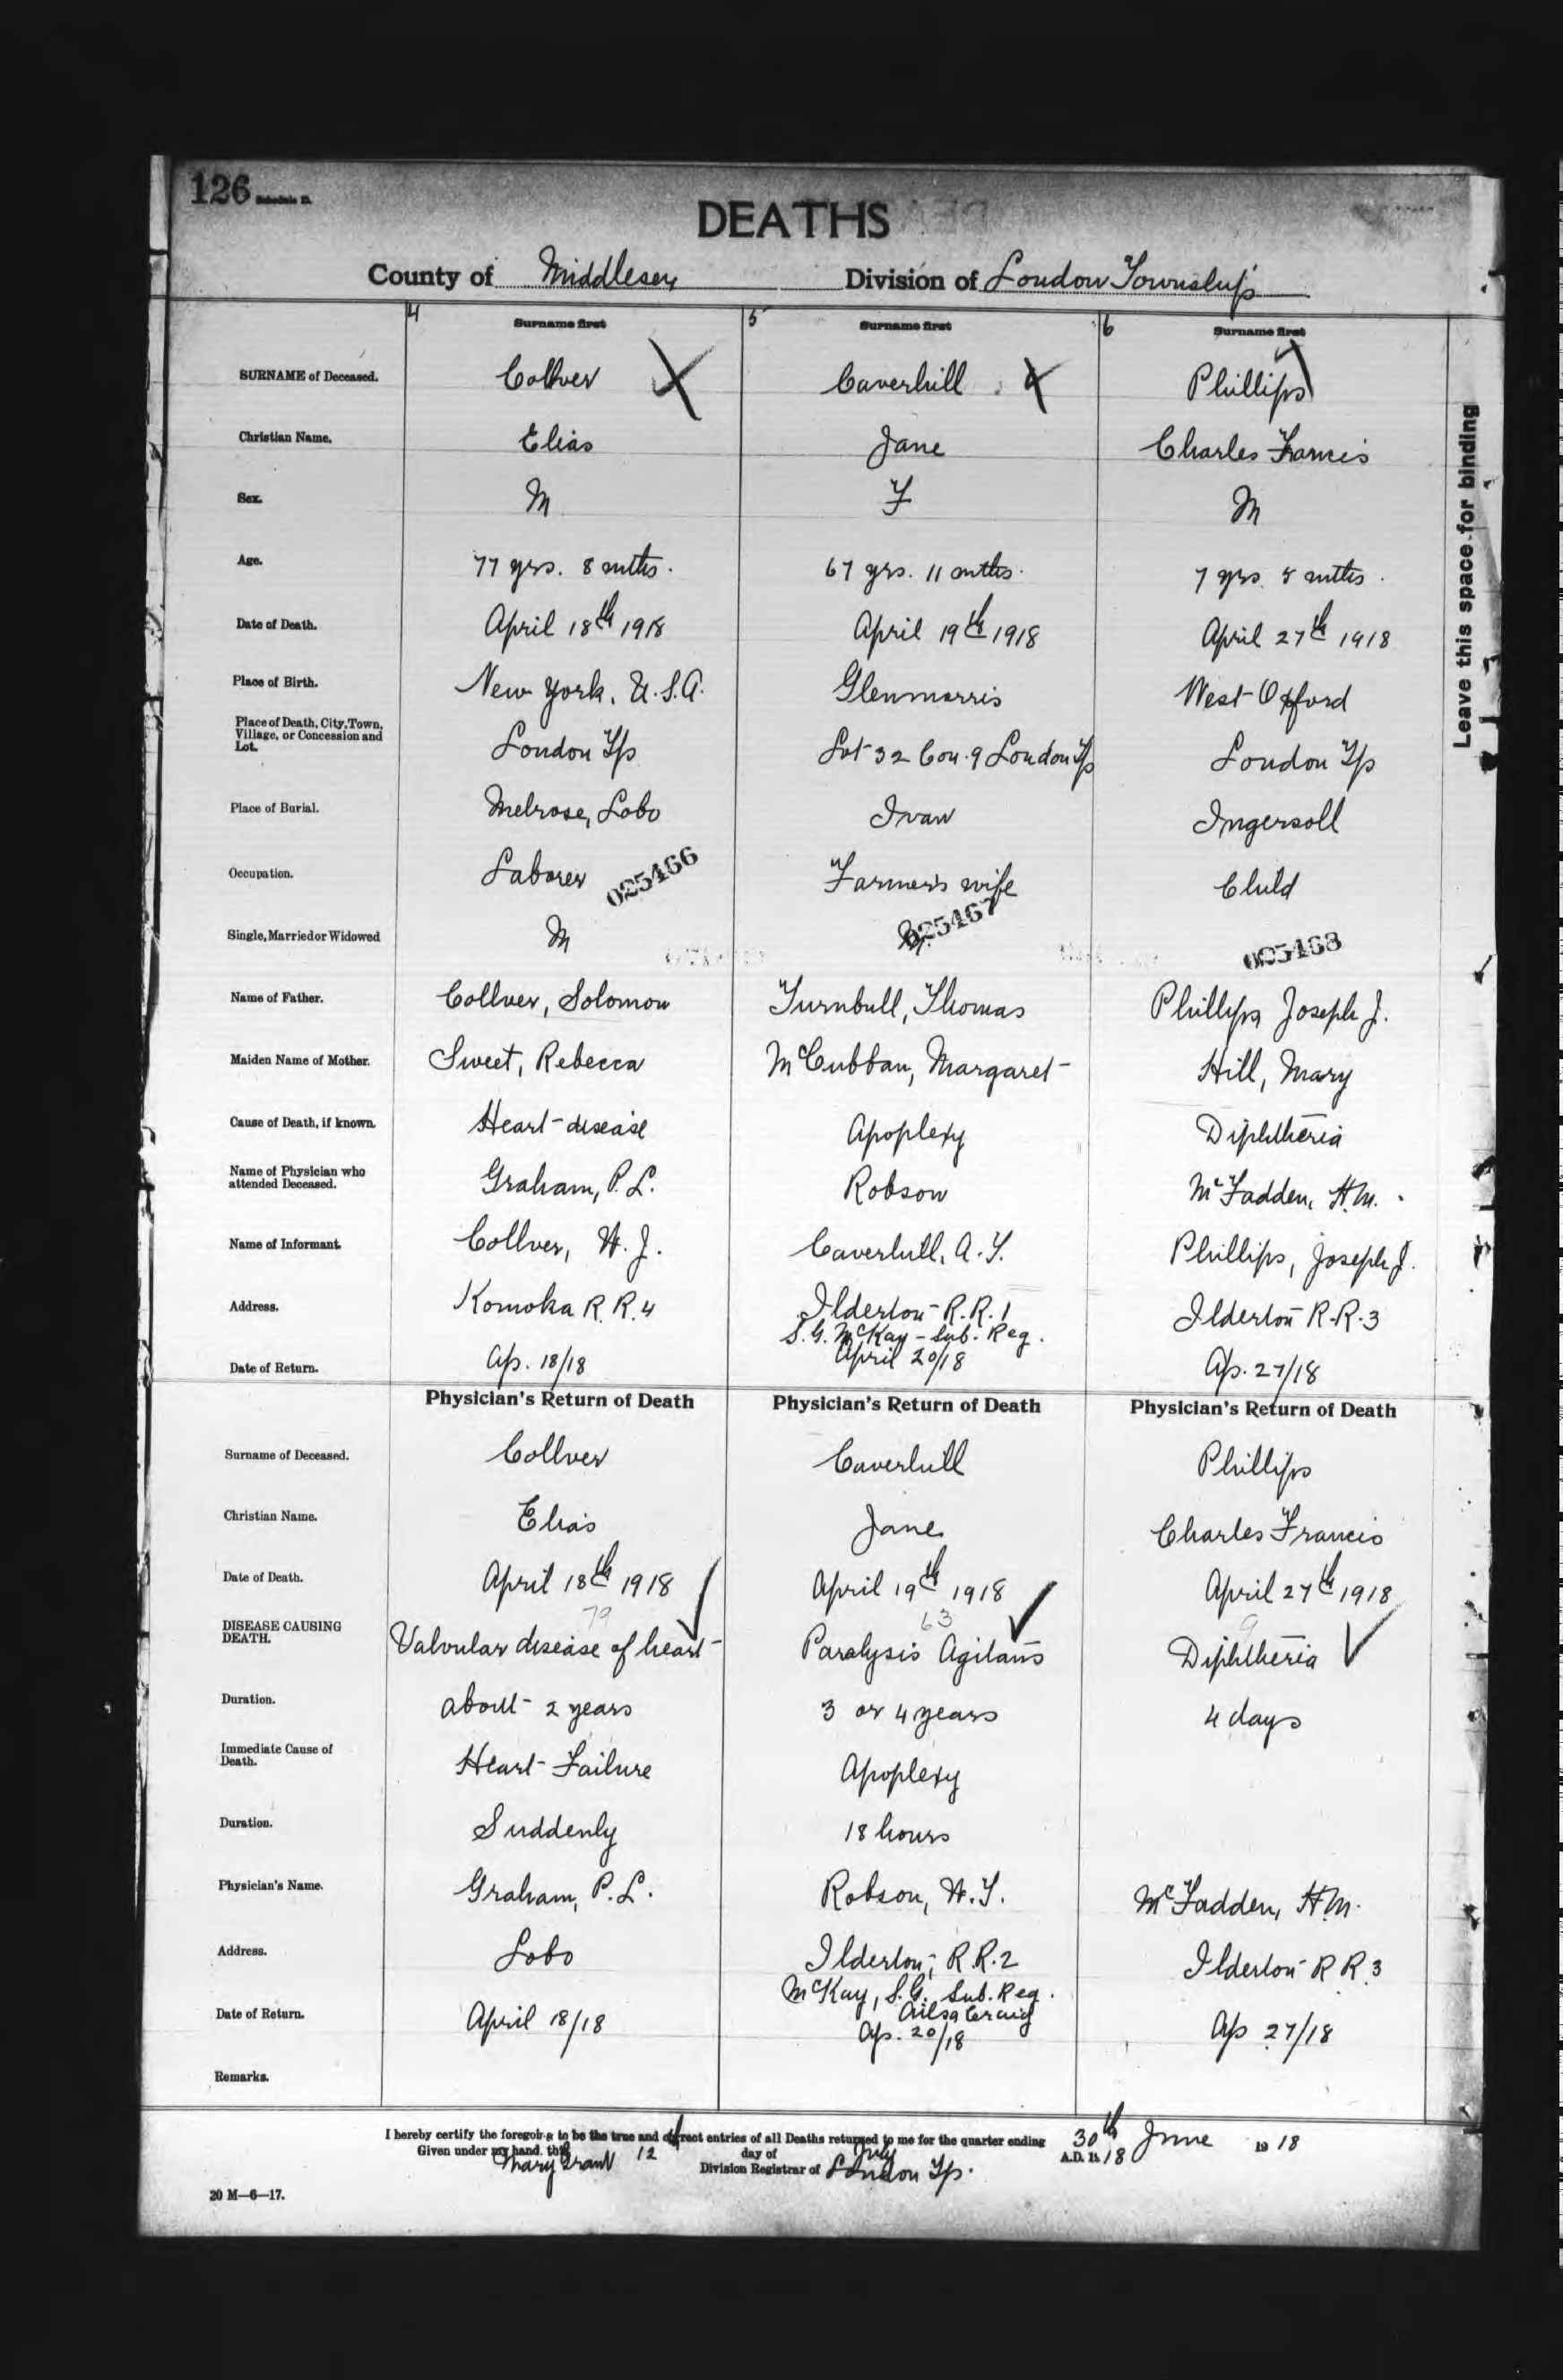 126 Schedule D.
DEATHS
County of Middlesex Division of London Township
4 Surname first 5 Surname first 6 Surname first
SURNAME of Deceased. Collver Caverhill Phillips
Christian Name. Elias Jane Charles Francis
Sex. M F M
Age. 77 yrs. 8 mths. 67 yrs. 11 mths. 7 yrs mths.
Date of Death. April 18th 1918 April 19th 1918 April 27th 1918
Place of Birth. New York, U.S.A. Glenmorris West Oxford
Place of Death, City, Town,
Village, or Concession and
Lot. London Tp Lot 32 Con. 9 London Tp London Tp
Place of Burial. Melrose, Lobo Ivan Ingersoll
Occupation. Laborer 025466 Farmer's wife Child
Single, Married or Widowed M 025467 025468
Name of Father. Collver, Solomon Turnbull, Thomas Phillips Joseph J.
Maiden Name of Mother. Sweet, Rebecca McCubban, Margaret Hill, Mary
Cause of Death, if known. Heart disease Apoplexy Diphtheria
Name of Physician who
attended Deceased. Graham, P. L. Robson McFadden, H.M.
Name of Informant. Collver, W. J. Caverhill, A. Y. Phillips, Joseph J.
Address. Komoka R. R. 4 Ilderton R.R. 1 Ilderton R.R. 3
S. G. McKay - Sub. Reg.
Date of Return. Ap. 18/18 April 20/18 Ap. 27/18
Physician's Return of Death Physician's Return of Death Physician's Return of Death
Surname of Deceased. Collver Caverhill Phillips
Christian Name. Elias Jane Charles Francis
Date of Death. April 18th 1918 April 19th 1918 April 27th 1918
79 63 9
DISEASE CAUSING
DEATH. Valvular disease of heart Paralysis Agitans Diphtheria
Duration. about 2 years 3 or 4 years 4 days
Immediate Cause of
Death. Heart Failure Apoplexy
Duration. Suddenly 18 hours
Physician's Name. Graham, P. L. Robson, W. Y. McFadden, H.M.
Address. Lobo Ilderton, R.R. 2 Ilderton R R. 3
McKay, S. G. Sub. Reg.
Ailsa Craig
Date of Return. April 18/18 Ap. 20/18 Ap 27/18
Remarks.
I hereby certify the foregoing to be the true and correct entries of all Deaths returned to me for the quarter ending 30th June 1918
Given under my hand, this 12 day of July A.D. 1918
Mary Grant Division Registrar of London Tp.
20 M—6—17.
Leave this space for binding